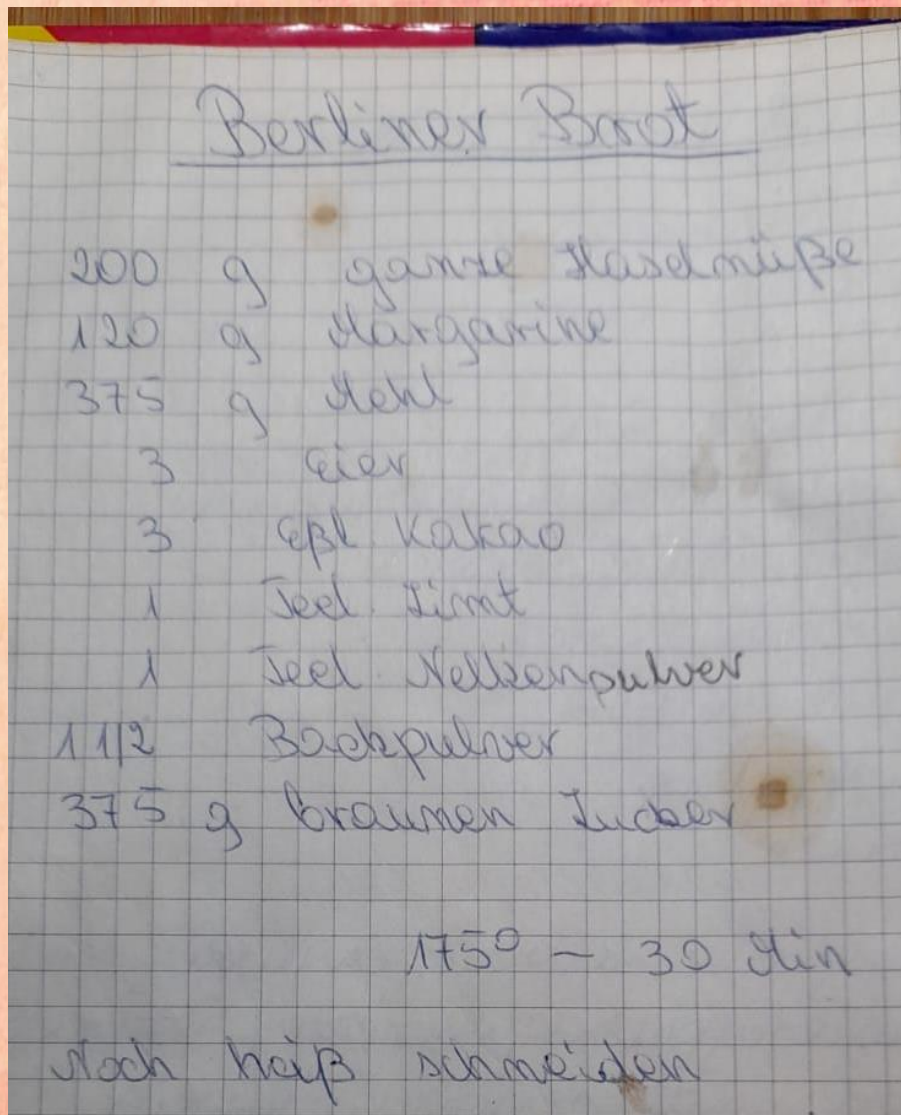 Berliner Brot
200 g ganze Haselnüße
120 g Margarine
375 g Mehl
3 Eier
3 Eßl Kakao
1 Teel. Zimt
1 Teel. Nelkenpulver
1 1/2 Backpulver
375 g braunen Zucker
175° – 30 Min
Noch heiß schneiden